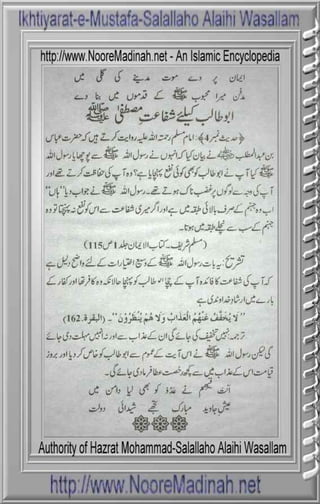 Ikhtiyarat-e-Mustafa-Salallaho Alaihi Wasallam
http://www.NooreMadinah.net - An Islamic Encyclopedia
ایمان پر دے موت مدینے کی گلی میں
مدفن میرا محبوب ﷺ کے قدموں میں بنا دے
ابوطالب کیلئے شفاعت مصطفیٰ ﷺ
﴿حدیث نمبر 4﴾: امام مسلم رحمۃ اللہ علیہ روایت کرتے ہیں کہ حضرت عباس
بن عبدالمطلب نے بیان کیا کہ انہوں نے رسول اللہ ﷺ سے پوچھا یا رسول اللہ
ﷺ کیا آپ نے ابوطالب کو بھی کوئی نفع پہنچایا ہے؟ وہ آپ کی حفاظت کرتے تھے اور
آپ کی وجہ سے لوگوں پر غضب ناک ہوتے تھے۔ رسول اللہ ﷺ نے جواب دیا "ہاں"
اب وہ جہنم کے صرف بالائی طبقہ میں ہے اور اگر میری شفاعت سے اس کو نفع نہ پہنچتا تو وہ
جہنم کے سب سے نچلے طبقہ میں ہوتا۔
(مسلم شریف۔ کتاب الایمان جلد 1 ص 115)
تشریح: یہ بات رسول اللہ ﷺ کے وسیع اختیارات کے لئے واضح دلیل ہے
کہ آپ کی شفاعت کا فائدہ آپ کے چچا ابوطالب کو پہنچا حالانکہ وہ کافر تھا اور کفار کے
بارے میں ارشاد خداوندی ہے
"لَا يُخَفَّفُ عَنْهُمُ الْعَذَابُ وَلَا هُمْ يُنْظَرُوْنَ"۔ (البقرۃ۔162)
ترجمہ: نہیں تخفیف کی جائے گی ان کے عذاب سے اور نہ انہیں مہلت دی جائے
گی لیکن رسول اللہ ﷺ نے اس آیت کے عموم سے ابوطالب کو خاص کر دیا اور بروز
قیامت اس کے عذاب میں سے کچھ رخصت عطا فرما دی جائے گی۔
اَنتَ فیھم نے عدُو کو بھی لیا دامن میں
عیشِ جاوید مبارک تجھے شیدائی دولت
Authority of Hazrat Mohammad-Salallaho Alaihi Wasallam
http://www.NooreMadinah.net